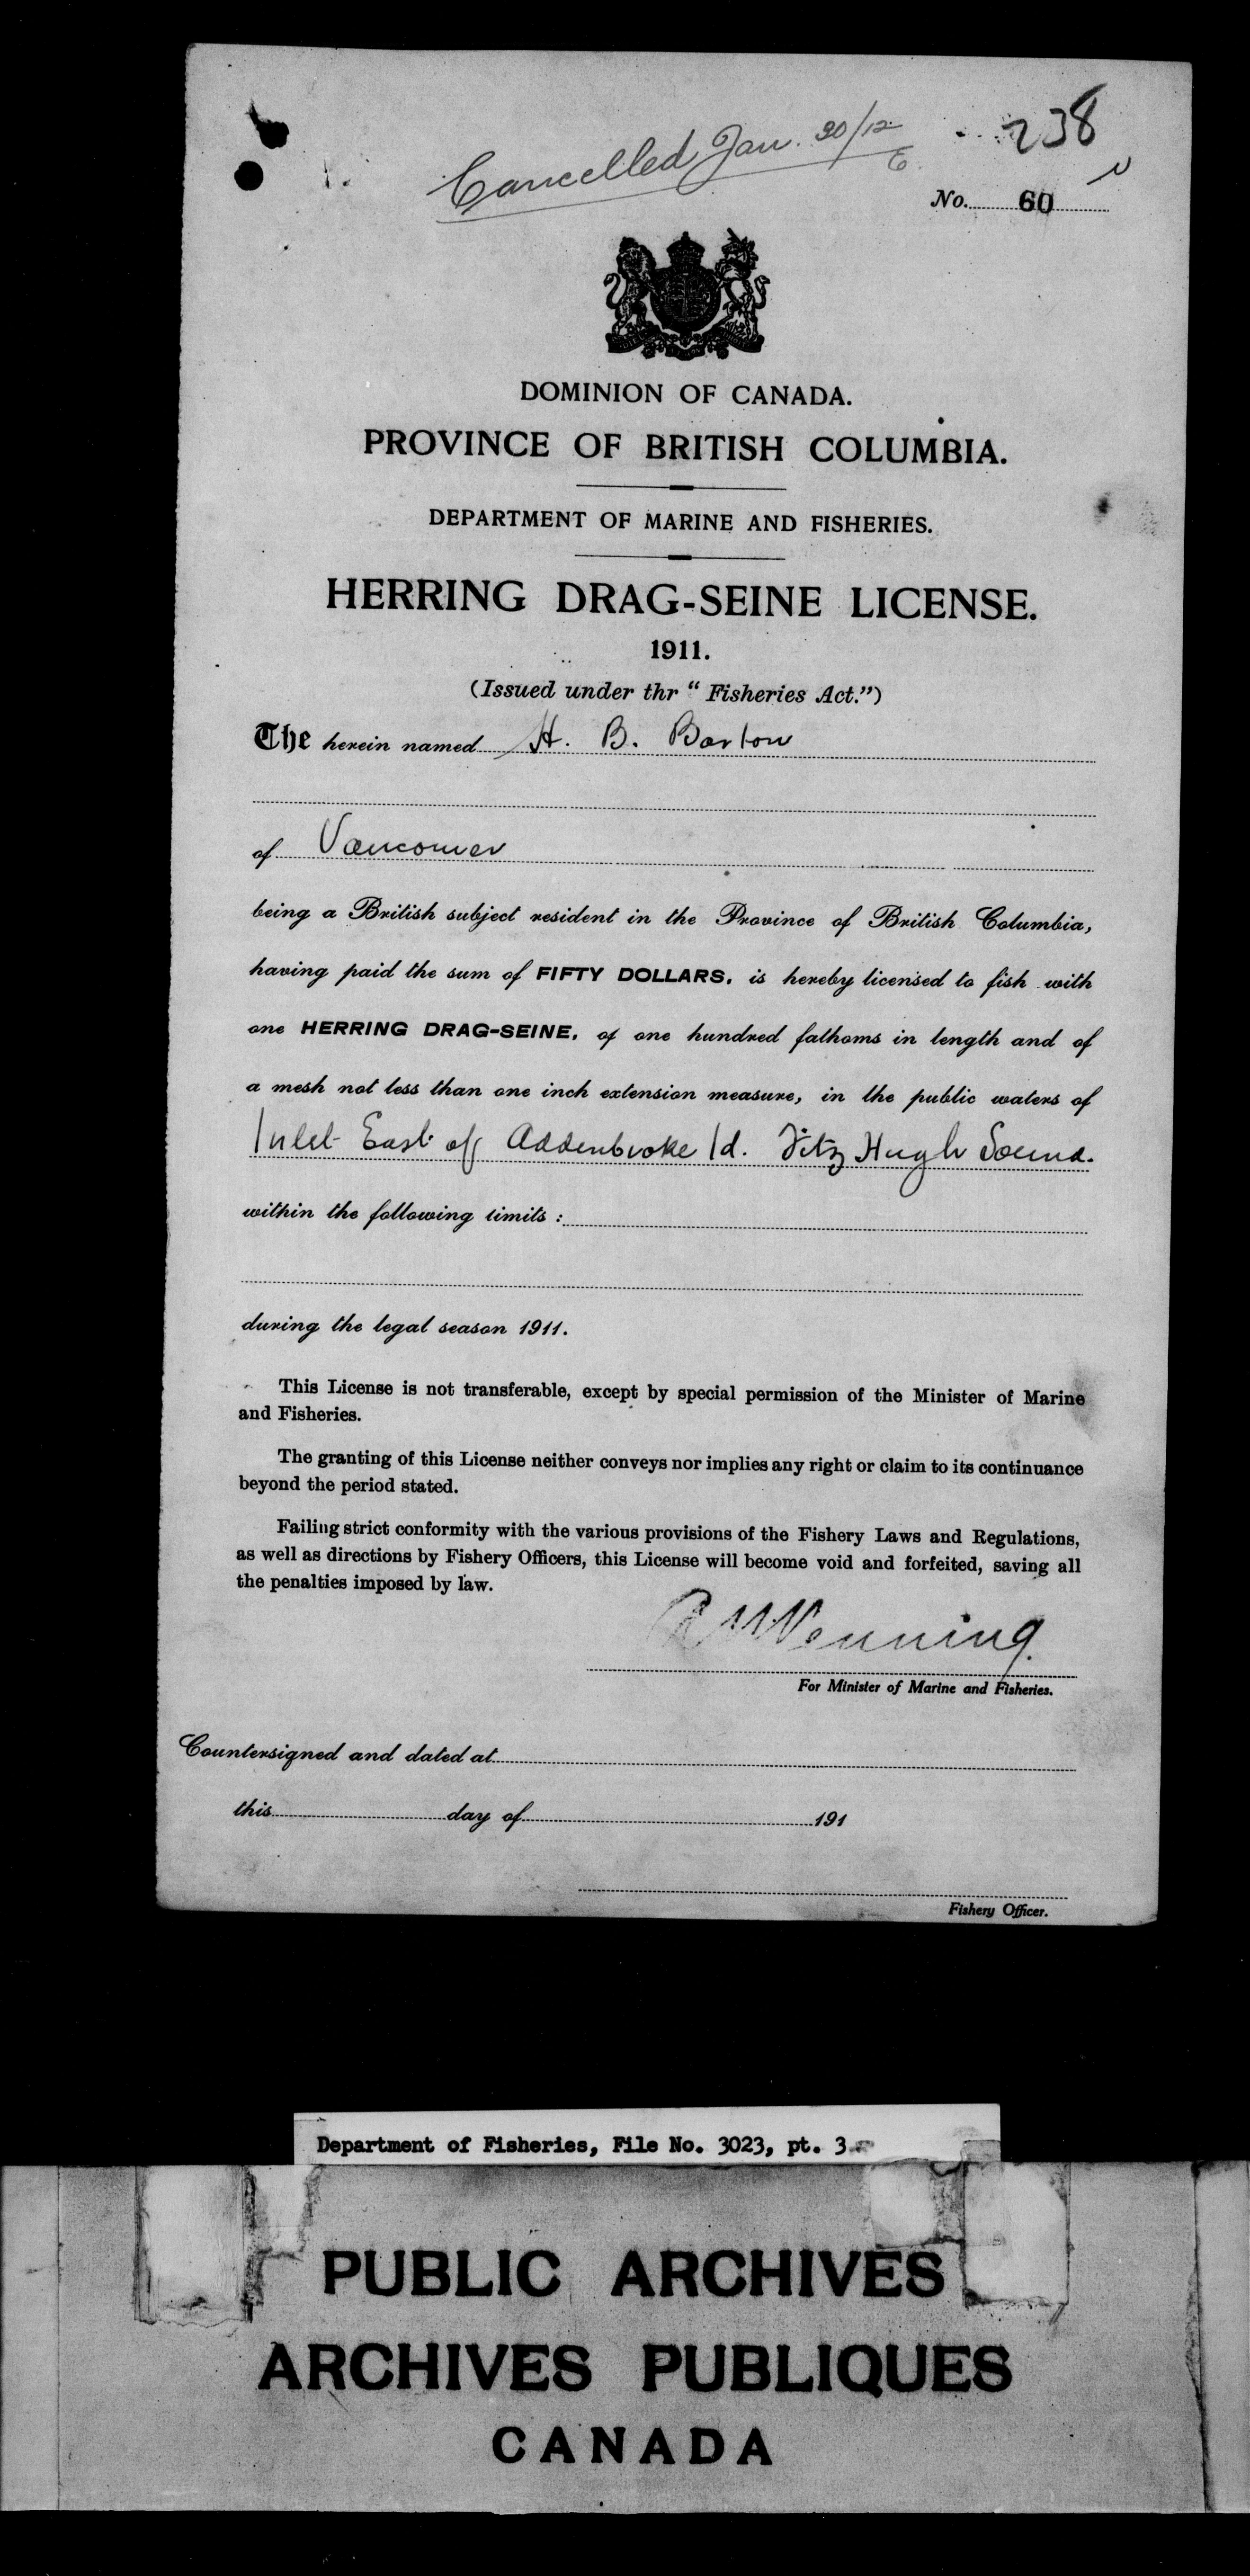 Cancelled Jan. 30/12
238
No. 60
DOMINION OF CANADA.
PROVINCE OF BRITISH COLUMBIA.
DEPARTMENT OF MARINE AND FISHERIES.
HERRING DRAG-SEINE LICENSE.
1911.
(Issued under thr " Fisheries Act.")
The herein named H. B. Barton
of Vancouver
being a British subject resident in the Province of British Columbia,
having paid the sum of FIFTY DOLLARS, is hereby licensed to fish with
one HERRING DRAG-SEINE, of one hundred fathoms in length and of
a mesh not less than one inch extension measure, in the public waters of
Inlet East of Addenbroke Id. Fitz Hugh Sound.
within the following limits :
during the legal season 1911.
This License is not transferable, except by special permission of the Minister of Marine
and Fisheries.
The granting of this License neither conveys nor implies any right or claim to its continuance
beyond the period stated.
Failing strict conformity with the various provisions of the Fishery Laws and Regulations,
as well as directions by Fishery Officers, this License will become void and forfeited, saving all
the penalties imposed by law.
Venning.
For Minister of Marine and Fisheries.
Countersigned and dated at
this day of 191
Fishery Officer.
Department of Fisheries, File No. 3023, pt. 3
PUBLIC ARCHIVES
ARCHIVES PUBLIQUES
CANADA